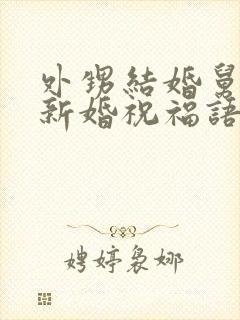 外甥結婚舅
新婚祝福語
娉婷裊娜